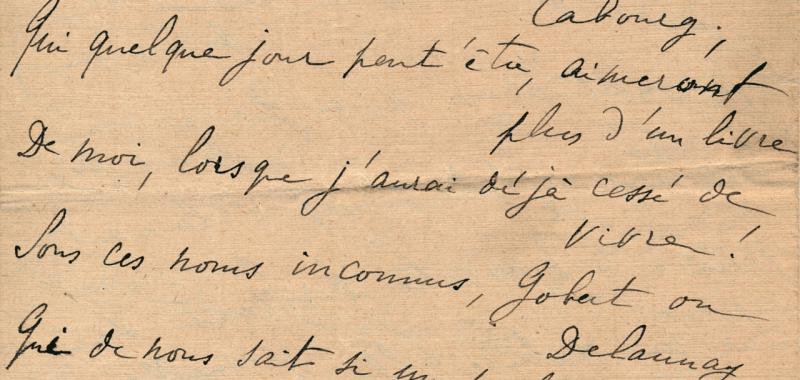 Cabourg,
Qui quelque jour peut être, aimeront
plus d'un livre
De moi, lorsque j'aurai déjà cessé de
vivre !
Sous ces noms inconnus, Gobert ou
Delaunay
Qui de nous sait si